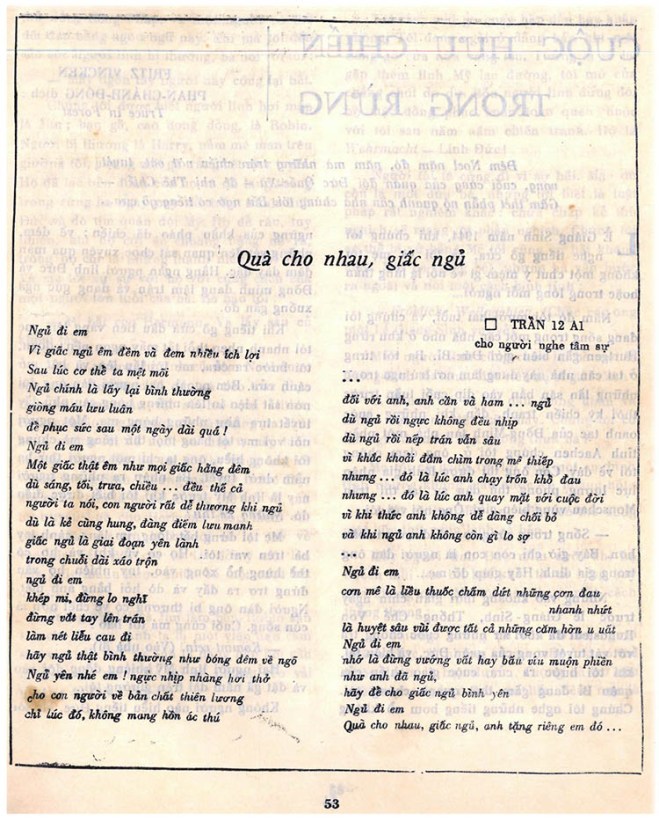 Quà cho nhau, giấc ngủ
□ TRẦN 12 A1
cho người nghe tâm sự
Ngủ đi em
Vì giấc ngủ êm đềm và đem nhiều ích lợi
Sau lúc cơ thể ta mệt mỏi
Ngủ chính là lấy lại bình thường
giòng máu lưu luân
để phục sức sau một ngày dài quá !
Ngủ đi em
Một giấc thật êm như mọi giấc hằng đêm
dù sáng, tối, trưa, chiều ... đều thế cả
người ta nói, con người rất dễ thương khi ngủ
dù là kẻ cùng hung, đàng điếm lưu manh
giấc ngủ là giai đoạn yên lành
trong chuỗi dài xáo trộn
ngủ đi em
khép mi, đừng lo nghĩ
đừng vắt tay lên trán
làm nét liễu cau đi
hãy ngủ thật bình thường như bóng đêm về ngõ
Ngủ yên nhé em ! ngực nhịp nhàng hơi thở
cho con người về bản chất thiên lương
chỉ lúc đó, không mang hồn ác thú
...
đối với anh, anh cần và ham ... ngủ
dù ngủ rồi ngực không đều nhịp
dù ngủ rồi nếp trán vẫn sâu
vì khắc khoải đắm chìm trong mê thiếp
nhưng ... đó là lúc anh chạy trốn khổ đau
nhưng ... đó là lúc anh quay mặt với cuộc đời
vì khi thức anh không dễ dàng chối bỏ
và khi ngủ anh không còn gì lo sợ
...
Ngủ đi em
cơn mê là liều thuốc chấm dứt những cơn đau
nhanh nhứt
là huyệt sâu vùi được tất cả những căm hờn u uất
Ngủ đi em
nhớ là đừng vướng vất hay bấu víu muộn phiền
như anh đã ngủ,
hãy để cho giấc ngủ bình yên
Ngủ đi em
Quà cho nhau, giấc ngủ, anh tặng riêng em đó ...
53